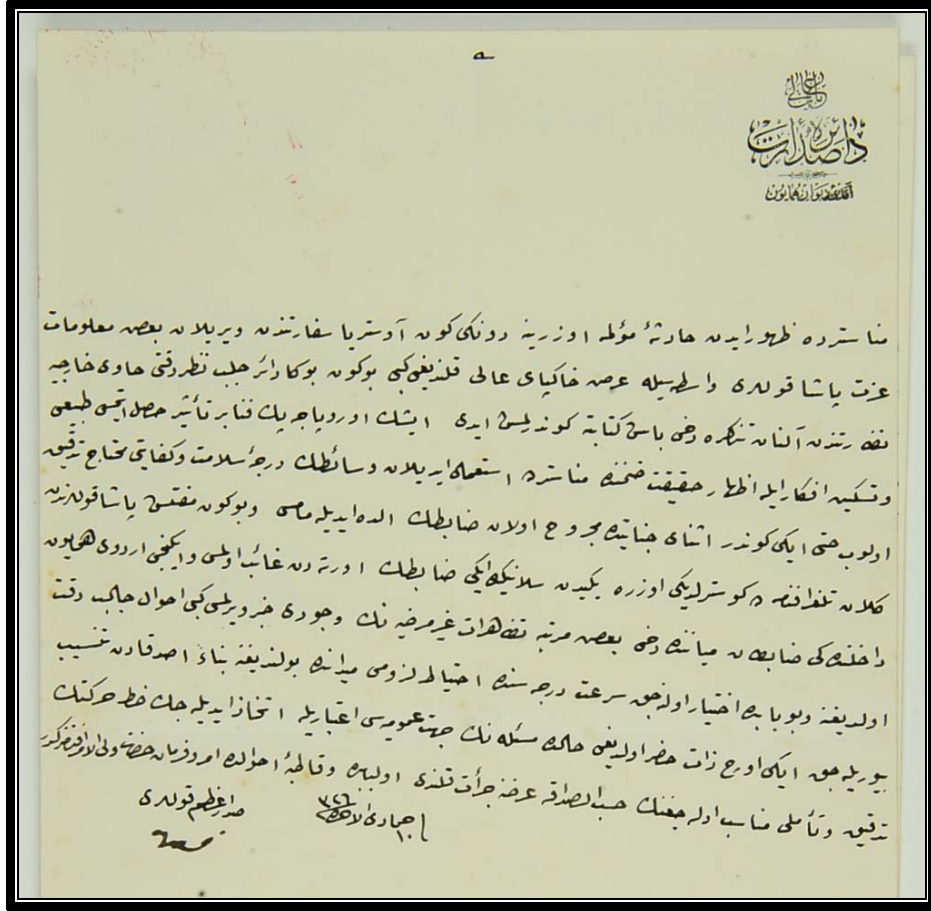 ه
باب عالی
دائرهٔ صدارت
آمدی دیوان همایون
مناسترده ظهور ایدن حادثهٔ مؤلمه اوزرینه دونکی کون آوستریا سفارتندن ویریلان بعض معلومات
عزت پاشا قوللری واسطه‌سیله عرض خاکپای عالی قلندیغی کبی بوکون بوکا دائر جلب نظر دقتی حاوی خارجیه
نظارتندن آلنان تذکره دخی باش کتابته کوندرلمش ایدی ایشك اوروپاجه پك فنا بر تأثیر حاصل ایتمسی طبیعی
وتسکین افکار ایله اظهار حقیقت ضمننده مناسترده استعمال ایدیلان وسائطك درجهٔ سلامت وکفایتی محتاج تدقیق
اولوب حتی ایکی کوندر اثنای جنایتده مجروح اولان ضابطك الده ایدیله‌مامسی وبوکون مفتش پاشا قوللرندن
کلان تلغرافنامه‌ده کوسترلدیکی اوزره یکیدن سلانیکده ایکی ضابطك اورته‌دن غائب اولمسی وایکنجی اردوی همایون
داخلنده‌کی ضابطان میاننده دخی بعض مرتبه تظاهرات غیر مرضیه‌نك وجودی خبر ویرلمسی کبی احوال جالب دقت
اولدیغنه وبو بابده اختیار اوله‌جق سرعت درجه‌سنده احتیاط لزومی میدانده بولندیغنه بناءً اصدقادن تنسیب
بیوریله‌جق ایکی اوچ ذات حاضر اولدیغی حالده مسئله‌نك جهت عمومیه‌سی اعتباریله اتخاذ ایدیله‌جك خط حرکتك
تدقیق وتأملی مناسب اوله‌جغنك حسب الصداقه عرضنه جرأت قلندی اولبابده وقاطبهٔ احوالده امر وفرمان حضرت ولی الامر افندمزکدر
فی ١٠ جمادی الاخره ٣٢٦
صدر اعظم قوللری